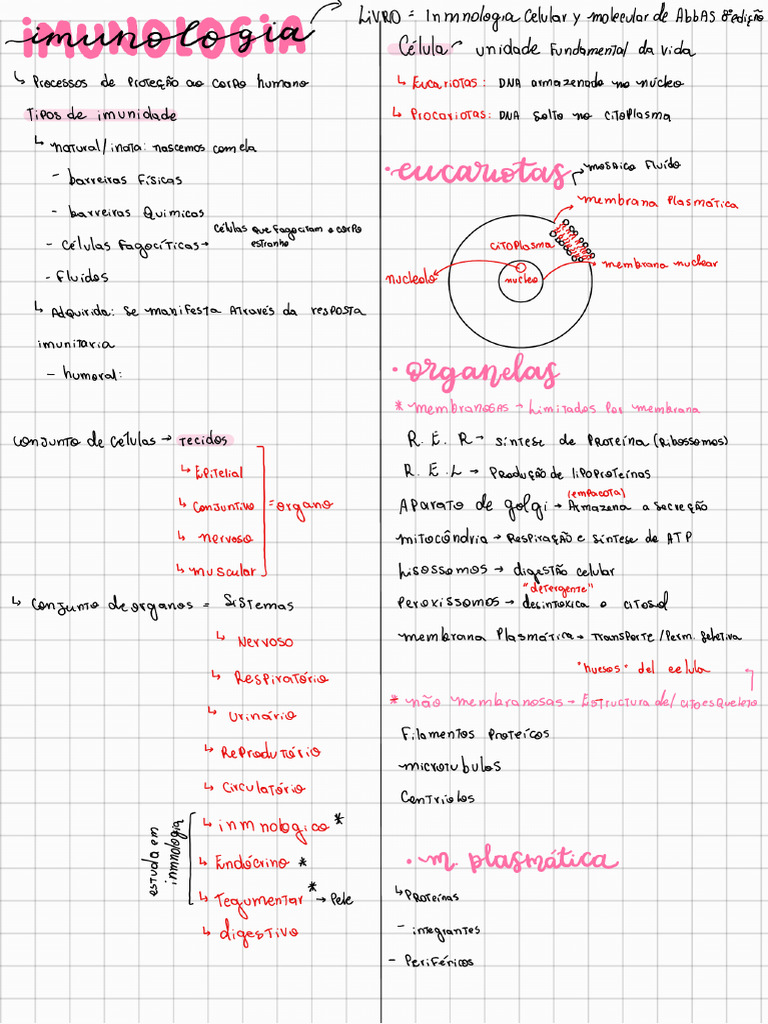 imunologia
LiVRO = Inmnologia Celular y molecular de AbbAS 8ª edição
↳ Processos de Proteção ao corpo humano
Tipos de imunidade
↳ natural/inata: nascemos com ela
- barreiras Físicas
- barreiras Quimicas
- células Fagocíticas → células que Fagocitam o corpo
estranho
- Fluidos
↳ Adquirida: Se manifesta através da resposta
imunitaria
- humoral:
conjunto de células → Tecidos
↳ Epitelial
↳ conjuntivo = organo
↳ nervoso
↳ muscular
↳ conjunto de organos = Sistemas
↳ Nervoso
↳ Respiratório
↳ urinário
↳ Reprodutório
↳ Circulatório
↳ inmnologico *
↳ Endócrino *
↳ Tegumentar * → Pele
↳ digestivo
estudo em
imunologia
Célula unidade Fundamental da vida
↳ Eucariotas: DNA armazenado no núcleo
↳ Procariotas: DNA Solto no citoplasma
• eucariotas
mosaico Fluído
membrana Plasmática
citoplasma
membrana nuclear
nucleolo
nucleo
• organelas
* membranosas → Limitados por membrana
R. E. R → síntese de Proteína (Ribossomos)
R. E. L → Produção de lipoproteínas
Aparato de golgi → Armazena a secreção
(empacota)
mitocôndria → Respiração e síntese de ATP
Lisossomos → digestão celular
"detergente"
Peroxissomos → desintoxica o citosol
membrana Plasmática → transporte / Perm. Seletiva
"huesos" del celula
* não membranosas → Estructura de/ citoesqueleto
Filamentos Proteícos
microtubulos
Centríolos
• m. plasmática
↳ Proteínas
- integrantes
- Periféricos